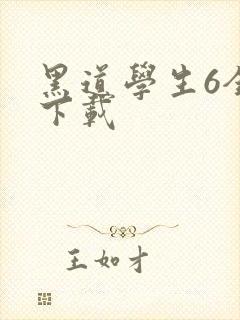 黑道學生6全
下載
王如才